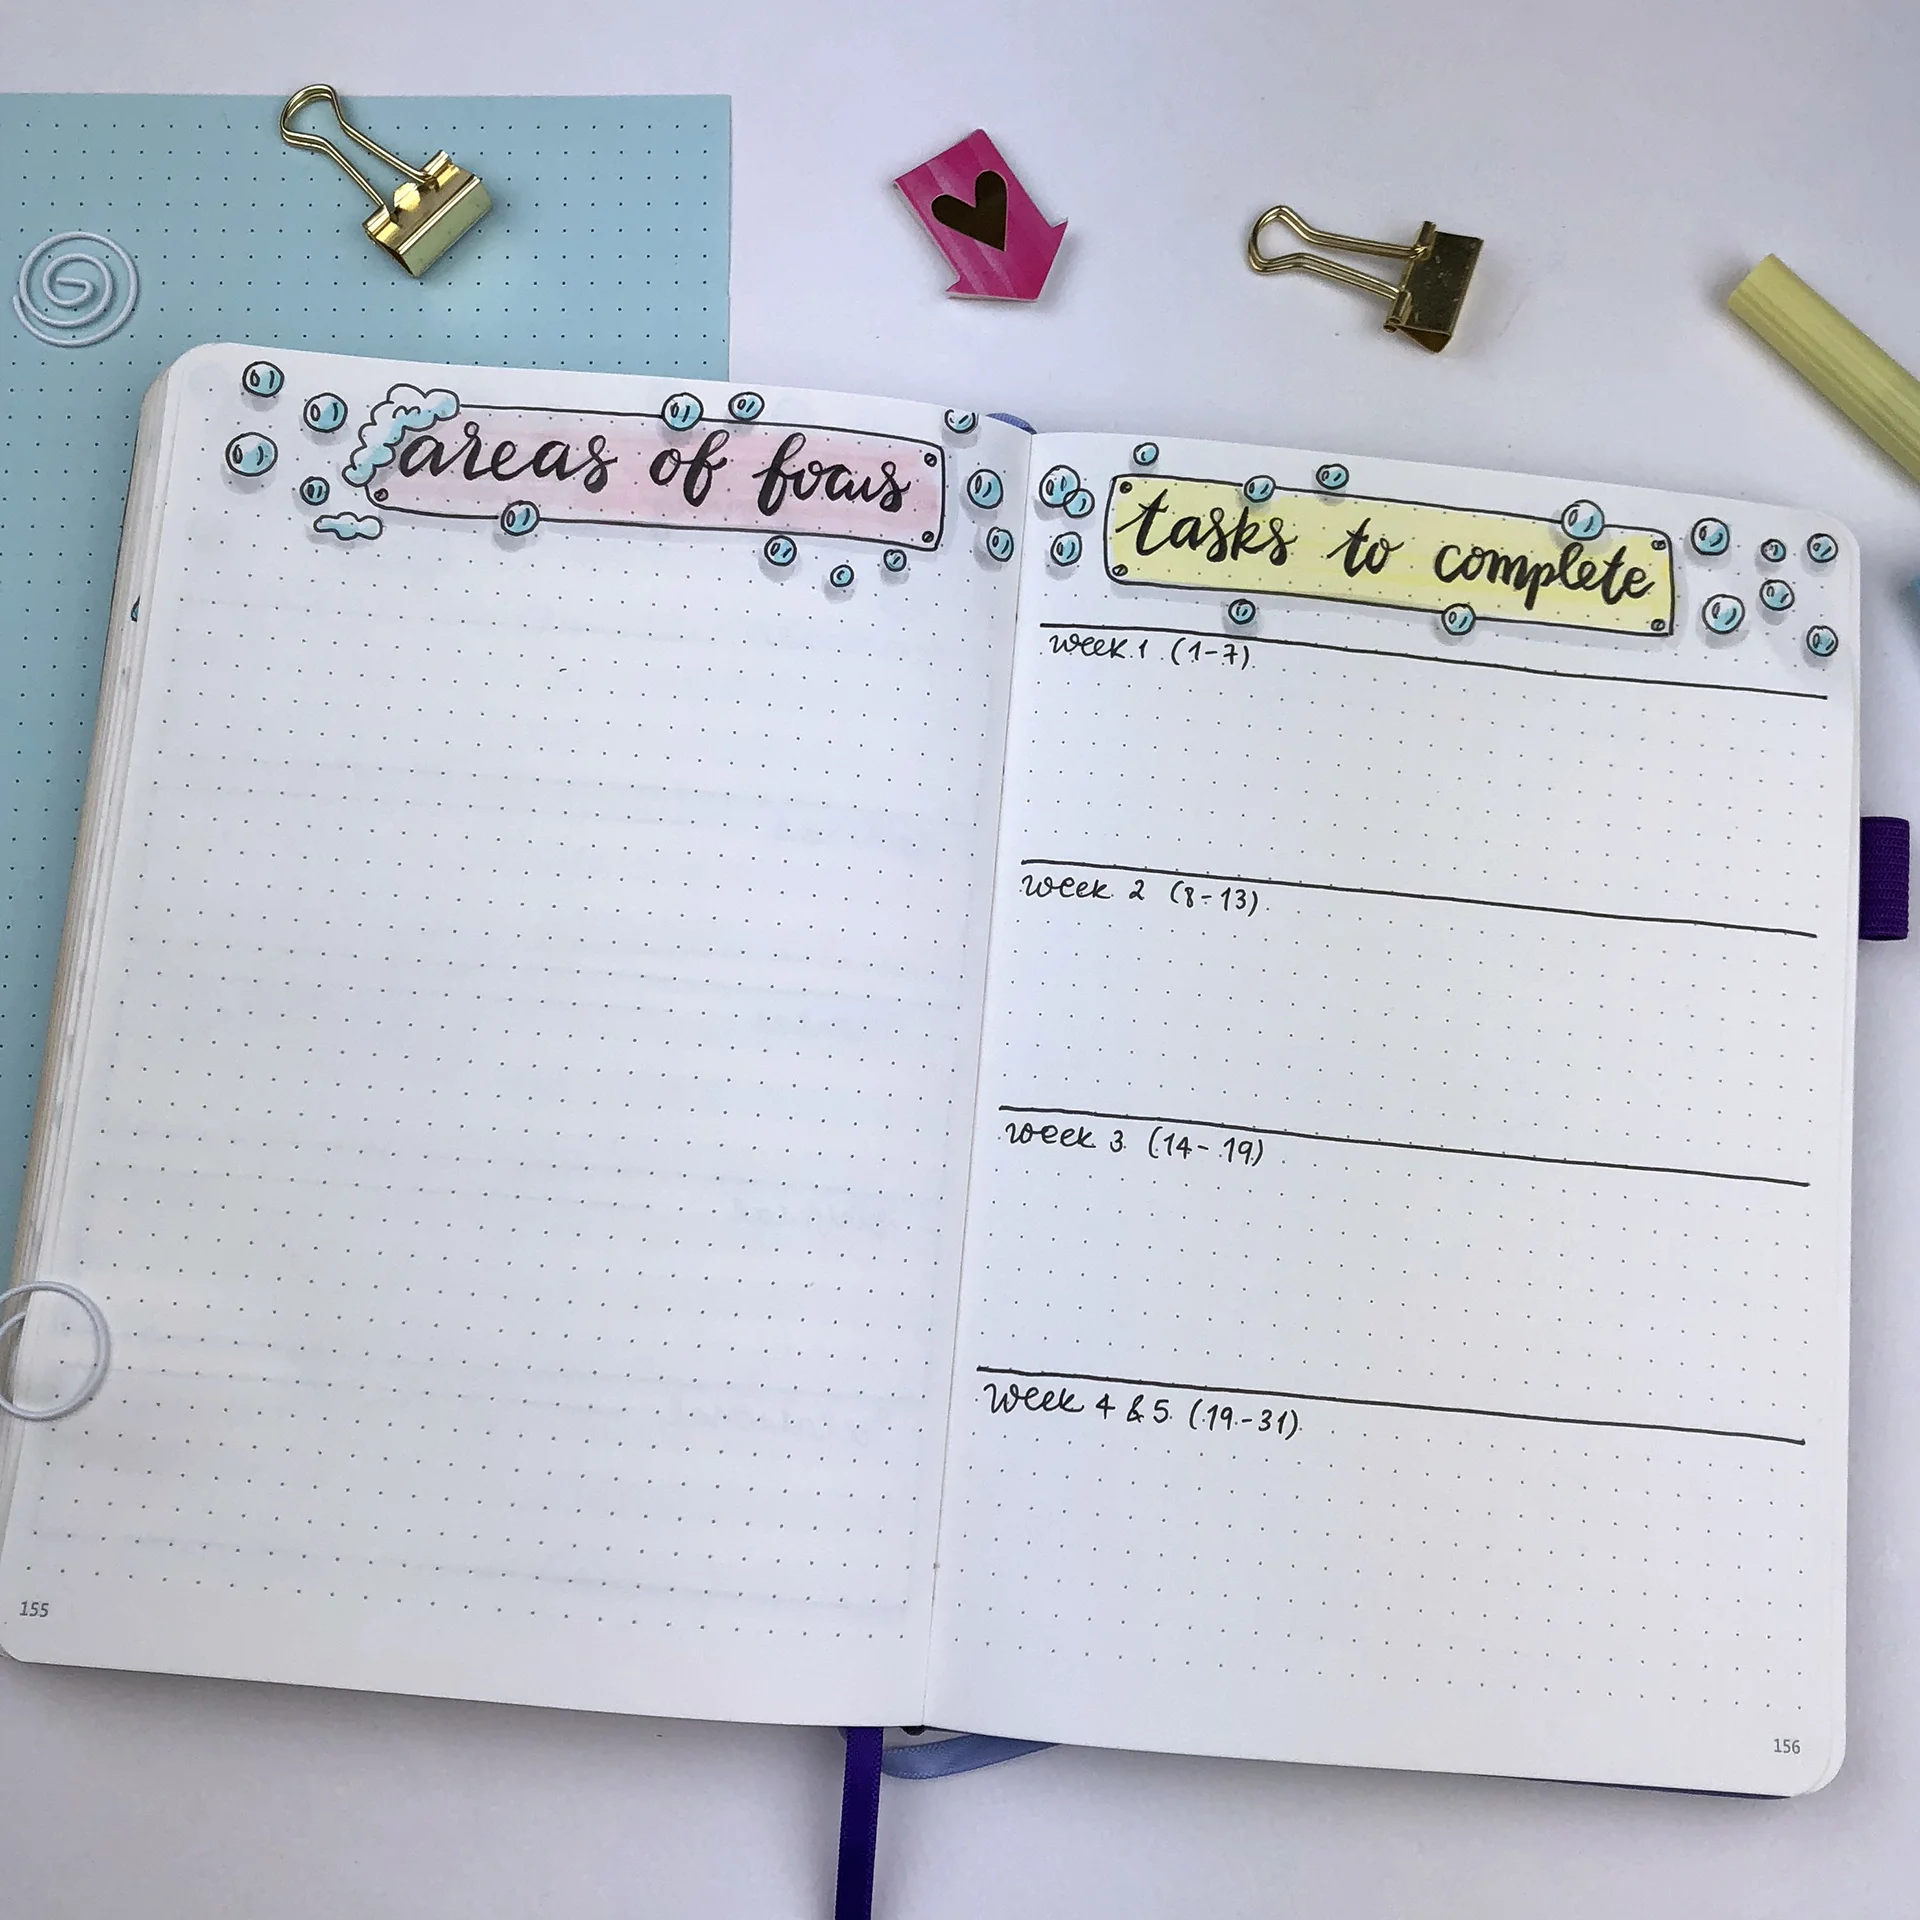 areas of focus
155
tasks to complete
week 1 (1-7)
week 2 (8-13)
week 3 (14-19)
week 4 & 5 (19-31)
156